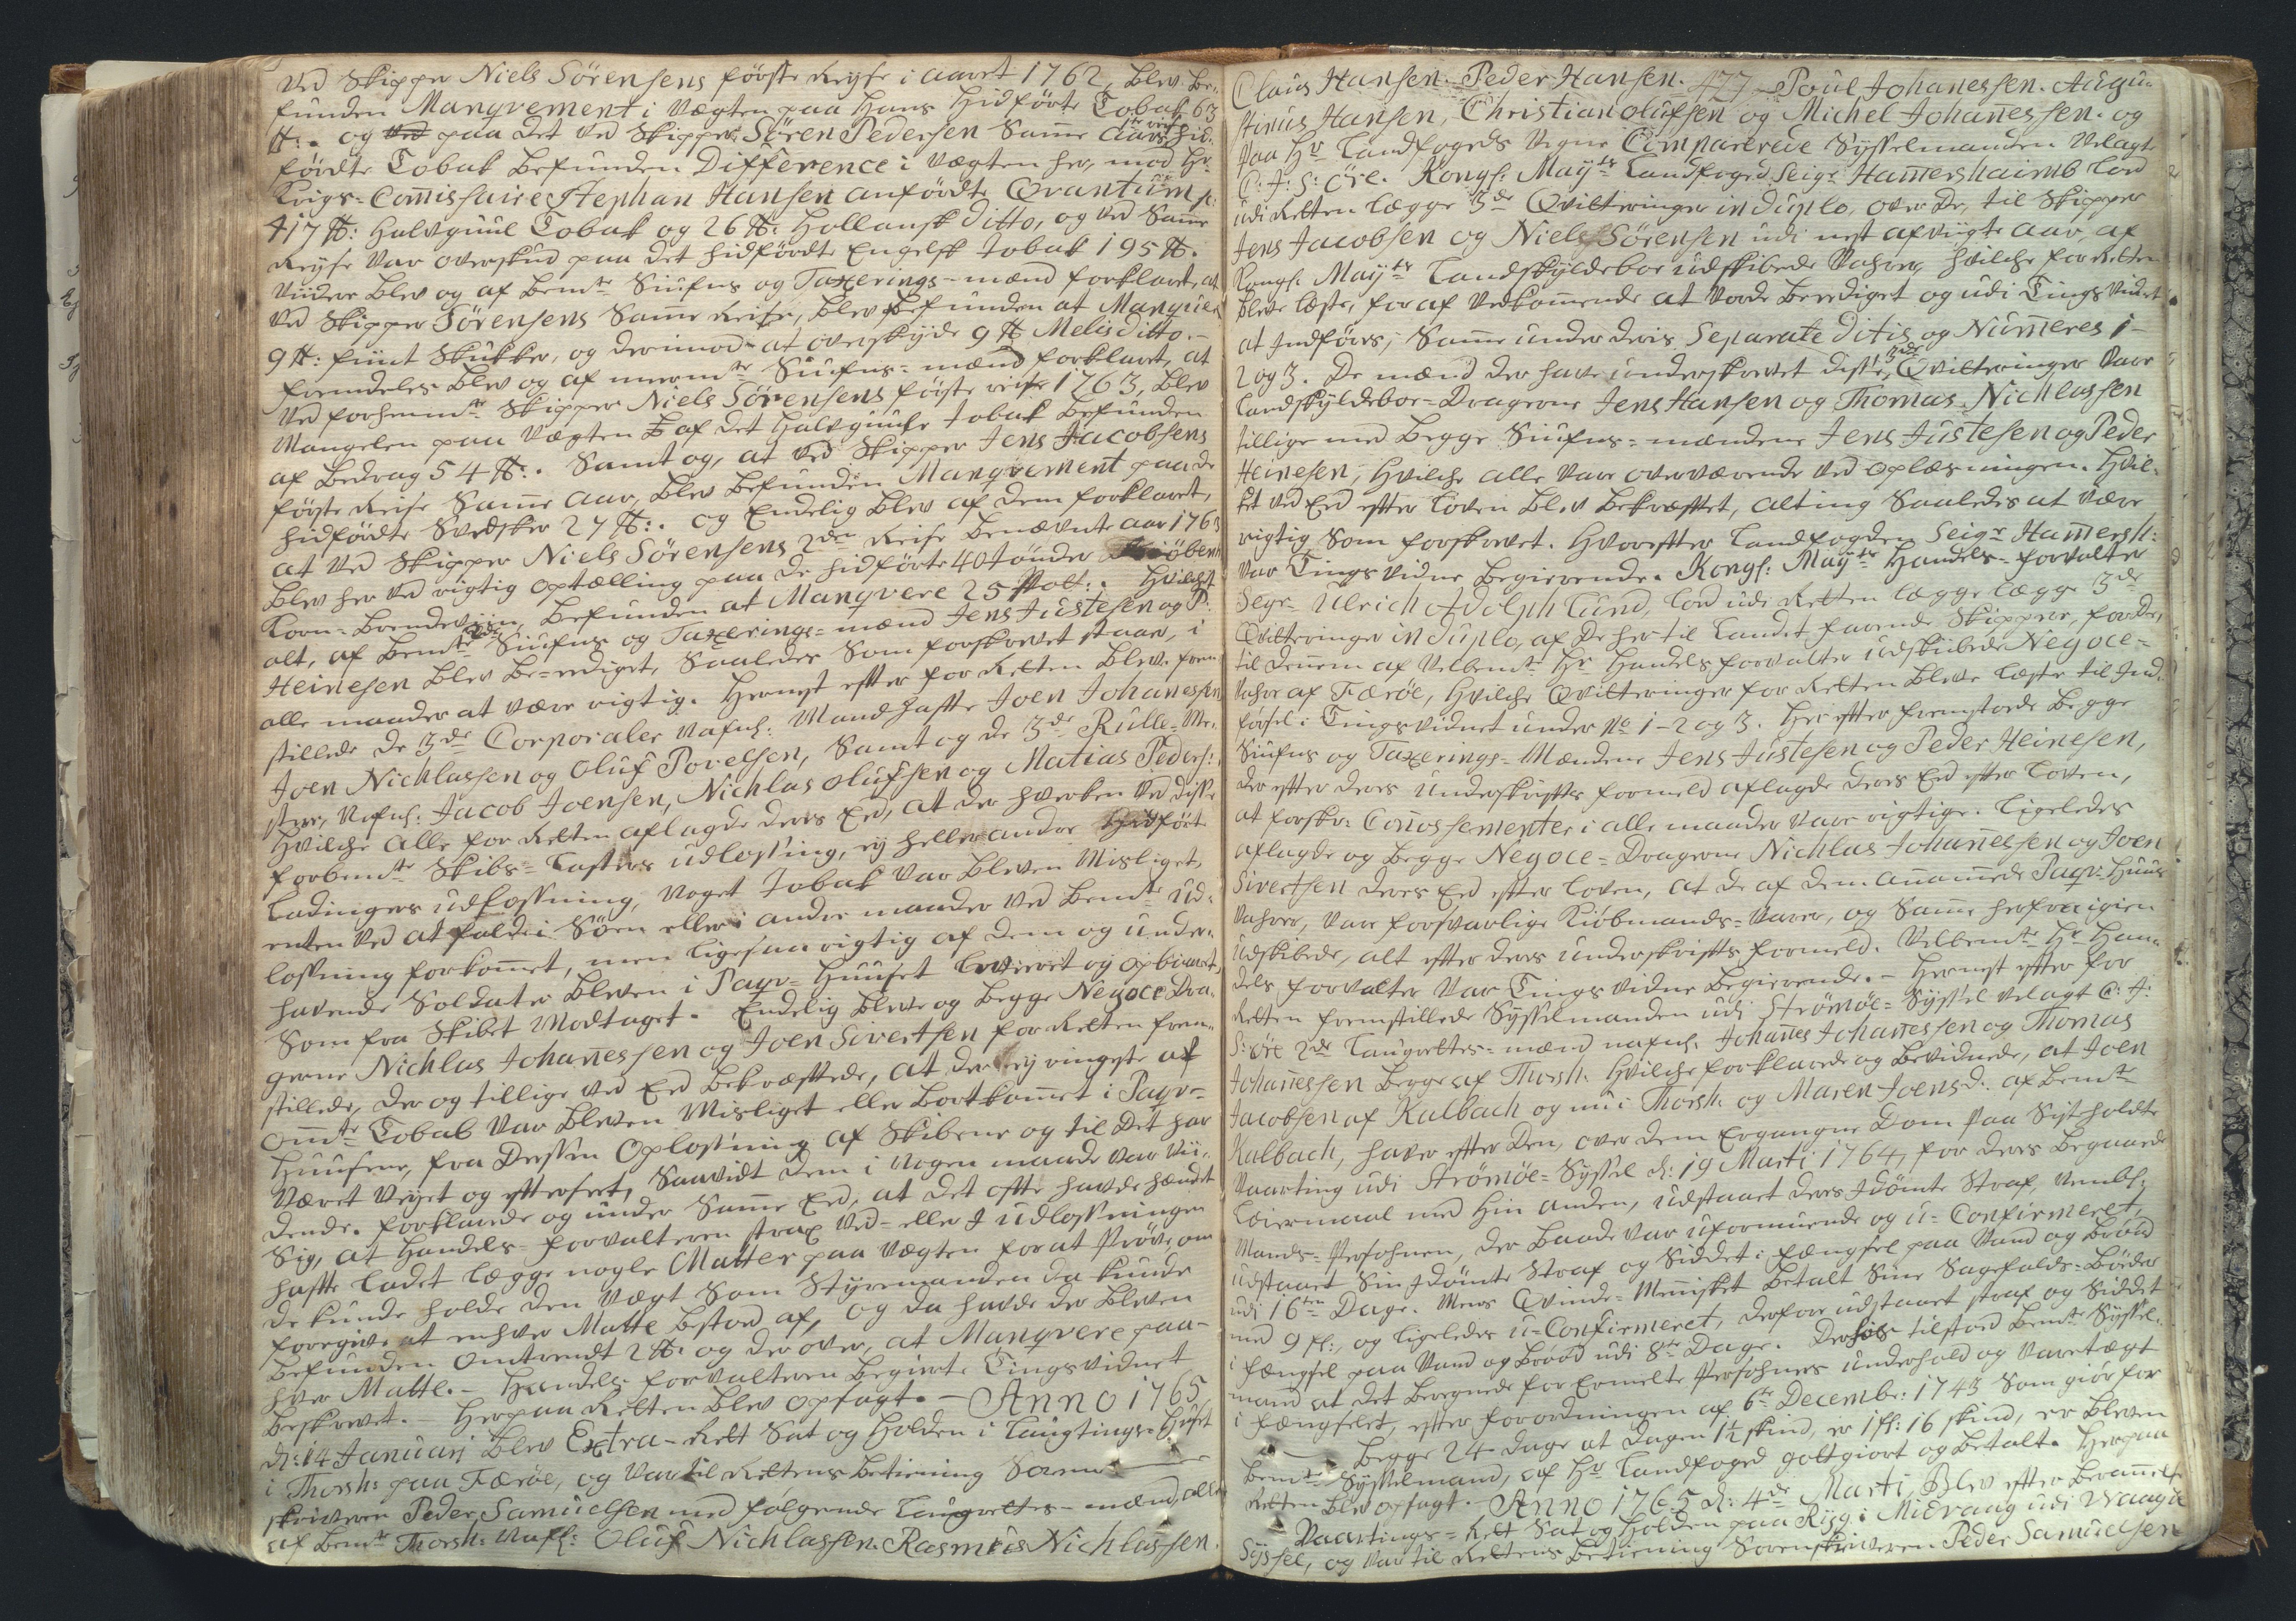 Ved Skipper Niels Sörensens förste Reyse i aaret 1762, blev be-
funden Manqvement i Vægten paa hans hidförte Tobak 63
℔: og paa det ved Skipper Sören Pedersen Samme Aars hid-
förte Tobak befunden Difference i Vægten her, mod Hr
Krigs-Commissaire Stephan Hansen anförte Qvantum
417 ℔: Halvguul Tobak og 26 ℔: Hollansk Ditto, og ved Samme
Reyse var overskud paa det hidförte Engelsk Tobak 195 ℔.
Viider blev og af bemte Siufns og Taxerings-mænd forklaret, at
ved Skipper Sörensens Samme Reise, blev befunden at Manqvere
9 ℔: fiint Sukker, og derimod at overskyde 9 ℔ Melis ditto.-
fremdeles blev og af meermte Siufns-mænd forklaret, at
ved forhenmte Skipper Niels Sörensens förste reise 1763, blev
Mangelen paa Vægten af det Halvguule Tobak befunden
af bedrag 54 ℔:. Samt og, at ved Skipper Jens Jacobsens
förste Reise Samme aar, blev befunden Manqvement paa de
hidförte Svedsker 27 ℔:. og Endelig blev af dem forklaret,
at ved Skipper Niels Sörensens 2den Reise benævnte aar 1763
blev her ved rigtig optælling paa de hidförte 40 tönder Kiöbenh
Korn-Brendeviin, befunden at Manqvere 25 Pott:. Hvilchet
alt, af bemte 2de Siufns og Taxerings-mænd Jens Justesen og P:
Heinesen blev be-eediget, Saaledes Som forskrevet staar, i
alle maader at være rigtig. Hernest efter for Retten blev frem-
stillede de 3de Corporaler Nafnl: Mandhafte Joen Johanessen
Joen Nichlassen og Oluf Povelsen, Samt og de 3de Rulle-Me-
stere, Nafnl: Jacob Joensen, Nichlas Olufsen og Matias Peders:
Hvilche alle for Retten aflagde deres Eed, at der hverken ved disse
forbemte Skibs-Lasters udlosning, ey heller andre hidfört
Ladingers udlosning, noget Tobak var bleven Misliget,
enten ved at falde i Söen eller i andre maader ved bemte ud-
losning forkommet, men ligesaa rigtig af dem og under-
havende Soldater bleven i Pagv-Huuset leveret og opbaaret,
Som fra Skibet Modtaget. Endelig bleve og begge Negoce Dra-
gerne Nichlas Johannessen og Joen Sivertsen for Retten frem-
stillede, der og tillige ved Eed bekræftede, at der ey ringeste af
ommte Tobak var bleven Misliget eller bortkommet i Pagv-
Huusene, fra Dessen Oplosning af Skibene og til det har
været Veyet og efterseet, Saavidt dem i nogen maade var vii-
dende. forklarede og under Samme Eed, at det ofte havde hændet
Sig, at Handels-forvalteren strax ved- eller udlosningen
hafte ladet lægge nogle Matter paa Vægten for at Pröve, om
de kunde holde den Vægt Som Styremanden da kunde
foregive at enhver Matte bestod af, og da havde der bleven
befunden omtrendt 2 ℔: og derover, at Manqvere paa-
hver Matte.- Handels-forvalteren begierte Tingsvidnet
beskrevet.- Herpaa Retten blev opsagt.- Anno 1765
d: 14 Januarj blev Extra-Rett Sat og Holden i Laugtings-Huuset
i Thorsh: paa Færöe, og var til Rettens betiening Soren-
skriveren Peder Samuelsen med fölgende Laugrettes-mænd, alle
af bemte Thorsh: Nafl: Oluf Nichlassen. Rasmus Nichlassen.
477
Claus Hansen. Peder Hansen. Poul Johanessen. Augu-
stinus Hansen, Christian Olufsen og Michel Johannessen. og
paa Hr Landfogeds Vegne Comparerede Sysselmanden Velagte
C: J: S: Öre. Kongl: Mayts Landfoged Seigr Hammershaimb lod
udi Retten lægge 3de Qvitteringer in Duplo, over de, til Skipper
Jens Jacobsen og Niels Sörensen udi nest afvigte aar, af
Kongl: Mayts Landskyldeboe udskibede Vahre, hvilche for Retten
bleve læste, for af Vedkommende at vorde beediget og udi Tingsvidnet
at Indföres, Samme under deris Separate Ditis og Numeres 1-
2 og 3. De mænd der have underskrevet disse 3de Qvitteringer vare
Landskyldeboe-Dragerne Jens Hansen og Thomas Nichlassen
tillige med begge Siufns-mændene Jens Justesen og Peder
Heinesen, Hvilche alle vare overværende ved oplæsningen. Hvil-
ket ved Eed efter Loven blev bekræftet, alting Saaledes at være
rigtig Som forskrevet. Hvorefter Landfogden Seigr Hammersh:
var Tingsvidne begierende. Kongl: Mayts Handels-forvalter
Segr Ulrich Adolph Lund, lod udi Retten lægge lægge 3de
Qvitteringer in Duplo, af de her til Landet farende Skippere, for de,
til dennem af Velbemte Hr Handelsforvalter udskibede Negoce-
Vahre af Færöe, hvilche Qvitteringer for Retten bleve læste til Ind-
försel i Tingsvidnet under No 1-2 og 3. Her efter fremstode begge
Siufns og Taxerings-Mændene Jens Justesen og Peder Heinesen,
der efter deres underskrifts formeld aflagde deres Eed efter Loven,
at forskr: Connossementer i alle maader vare rigtige. Ligeledes
aflagde og begge Negoce-Dragerne Nichlas Johannessen og Joen
Sivertsen deres Eed efter Loven, at de af dem annammede Pagv-Huus
Vahrer, vare forsvarlige Kiöbmands-Varer, og Samme herfra igien
udskibede, alt efter deres underskrifts formeld. Velbemte Hr Han-
dels forvalter var Tings vidne begierende.- Hernest efter for
Retten fremstillede Sysselmanden udi Strömöe-Syssel Velagt C: J:
S: Öre 2de Laugrettes-mænd nafnl: Johannes Johannessen og Thomas
Johannessen begge af Thorsh: hvilche forklarede og bevidnede, at Joen
Jacobsen af Kalbach og nu i Thorsh: og Maren Joensd: af bemte
Kalbach, haver efter den, over dem Ergangne Dom paa Sistholdte
Vaarting udi Strömöe-Syssel d: 19 Marti 1764, for deres begaaede
Leiermaal med hin anden, udstaaet deres Idömte Straf, nemlig
Mands-Persohnen, der baade var uformuende og u-Confirmeret,
udstaaet Sin Idömte Straf og Siddet i fængsel paa Vand og bröd
udi 16ten Dage. Mens Qvinde-Mennisket betalt Sine Sagefalds-Böder
med 9 fl:, og ligeledes u-Confirmeret, derfore udstaaet straf og Siddet
i fængsel paa Vand og bröd udi 8te Dage. Derhos tilstod bemte Syssel-
mand at det beregnede for Ermelte Persohners underhold og Varetægt
i fængselet, efter forordningen af 6te Decembr: 1743 Som giör for
begge 24 dage at dagen 1½ skind, er 1 fl: 16 skind, er bleven
bemte Sysselmand, af Hr Landfoged gottgiort og betalt. Herpaa
Retten blev opsagt.- Anno 1765 d: 4de Marti, blev efter berammelse
Vaartings-Rett Sat og Holden paa Ryg i Midvaag udi Waagöe
Syssel, og var til Rettens betiening Sorenskriveren Peder Samuelsen